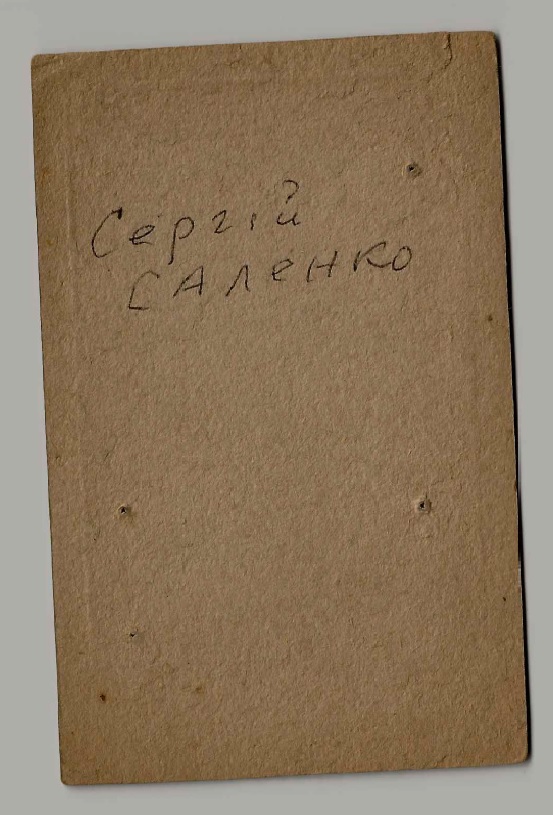 Сергій
САЛЕНКО